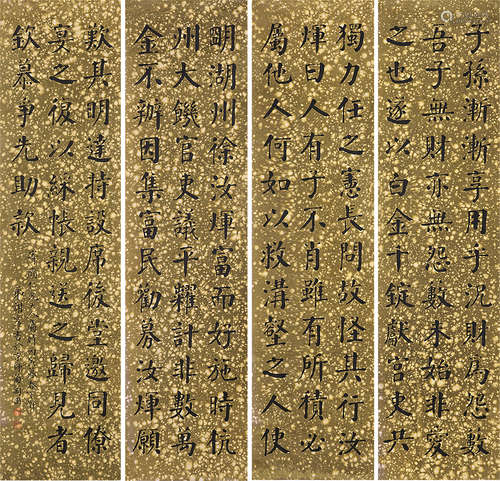 明湖州徐汝煇富而好施時杭
州大饑官吏議平糶計非數萬
金不辦因集富民勸募汝煇願
獨力任之憲長問故怪其行汝
煇曰人有子不肖雖有所積必
屬他人何如以救溝壑之人使
子孫漸漸享用乎況財為怨數
吾子無財亦無怨數未始非愛
之也遂以白金千錠獻官吏共
歎其明達特設席後堂邀同僚
宴之復以綵帳親送之歸見者
欽慕爭先助款